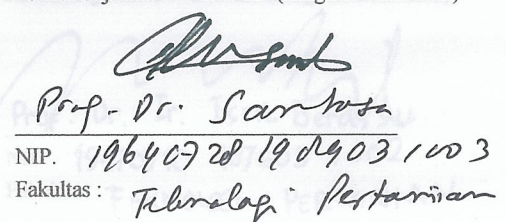 Prof. Dr. Santosa
NIP. 19640728 198903 1 003
Fakultas : Teknologi Pertanian